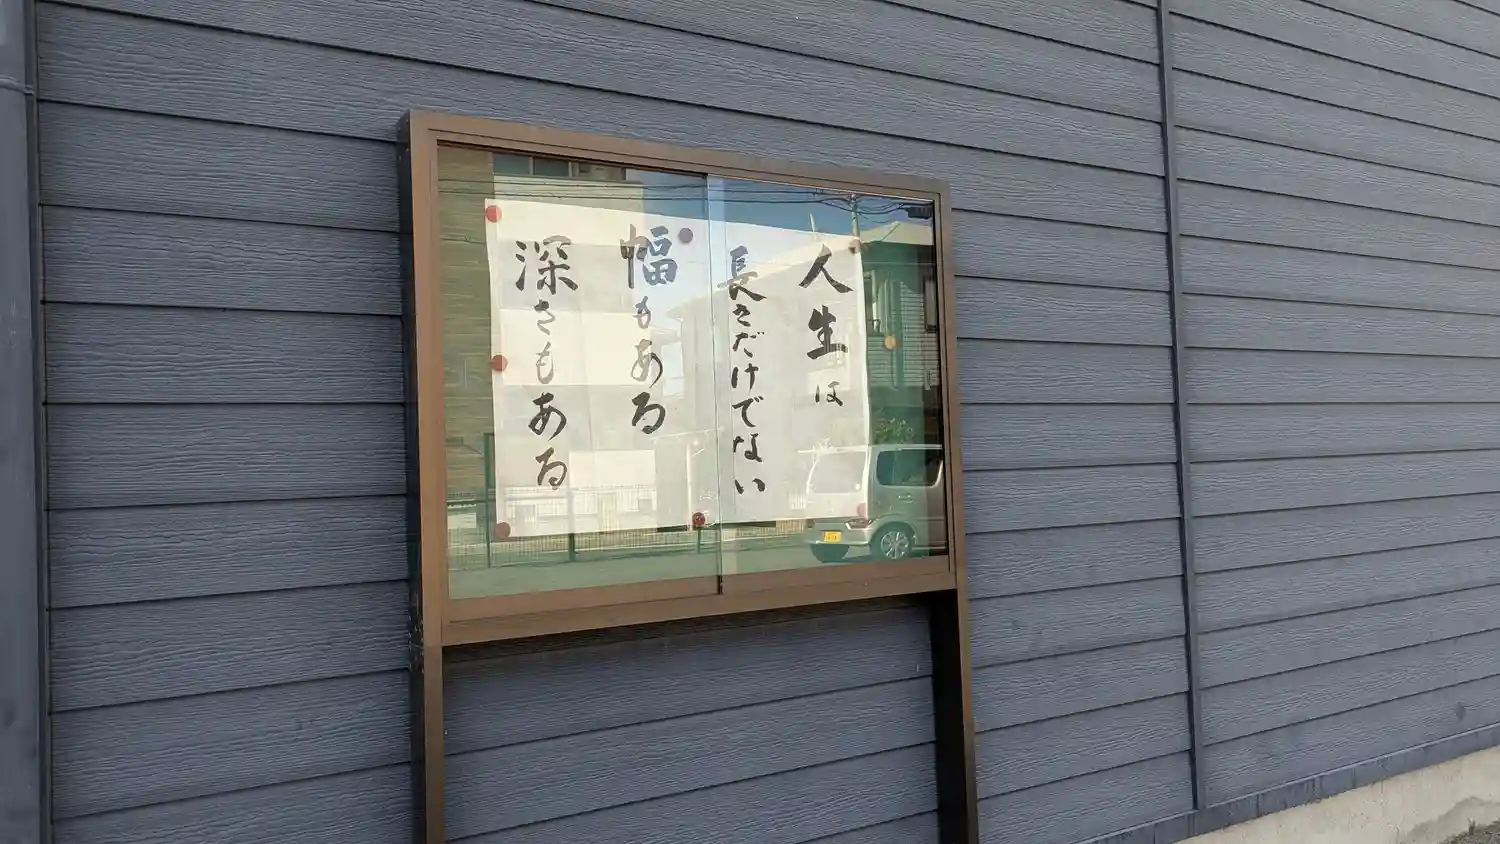 人生は
長さだけでない
幅もある
深さもある